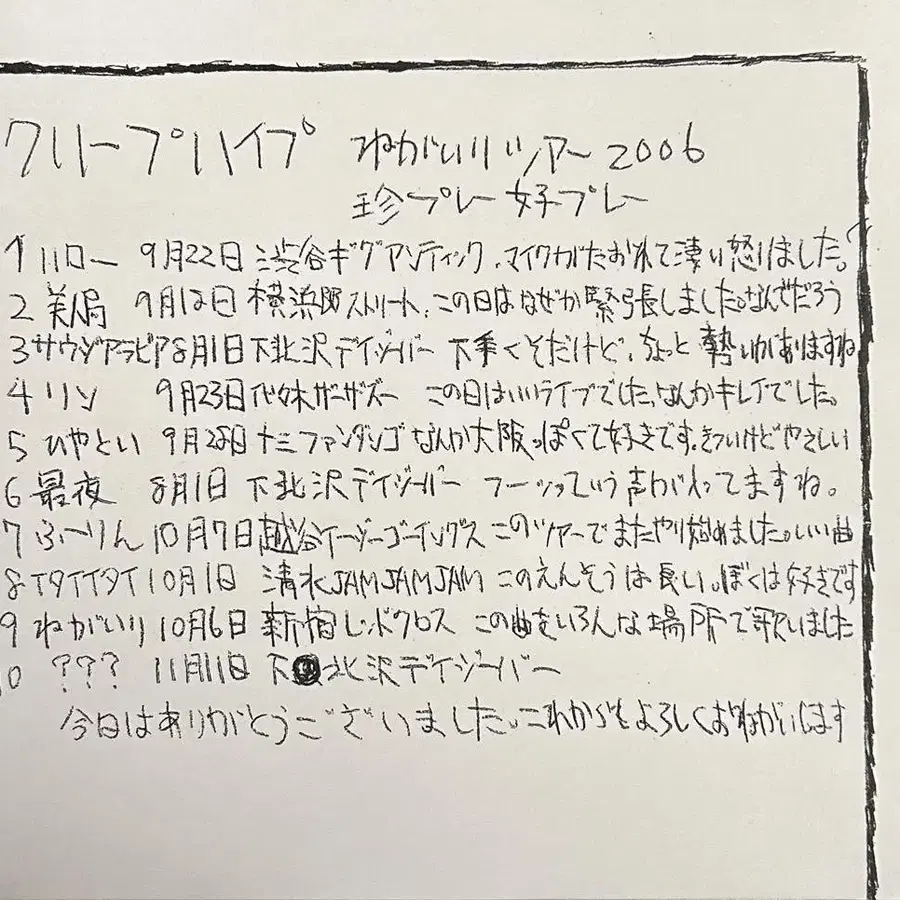 クリープハイプ ねがいり ツアー 2006
珍プレー 好プレー
1 ハロー 9月22日 渋谷ギグアンティック、マイクがたおれて凄い怒りました。
2 美人局 9月12日 横浜 ストリート、この日はなぜか緊張しました。なんでだろう
3 サウジアラビア 8月1日 下北沢デイジーバー 下手くそだけど、ちょっと勢いがありますね
4 リン 9月23日 代々木ザーザズー この日はいいライブでした。なんかキレイでした。
5 ひやとい 9月28日 十三ファンダンゴ なんか大阪っぽくて好きです。きついけどやさしい
6 最夜 8月1日 下北沢デイジーバー フーッっていう声が入ってますね。
7 ふーりん 10月7日 越谷イージーゴーイングス このツアーでまたやり始めました。いい曲
8 イタイイタイ 10月1日 清水JAMJAMJAM このえんそうは長い。ぼくは好きです
9 ねがいり 10月6日 新宿レッドクロス この曲をいろんな場所で歌いました
10 ??? 11月11日 下北沢デイジーバー
今日はありがとうございました。これからもよろしくおねがいします